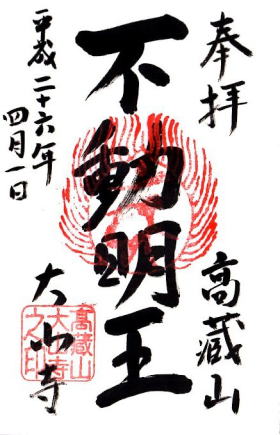 奉拝
高蔵山
不動明王
平成二十六年
四月一日
大山寺
高蔵山
大山寺
之印